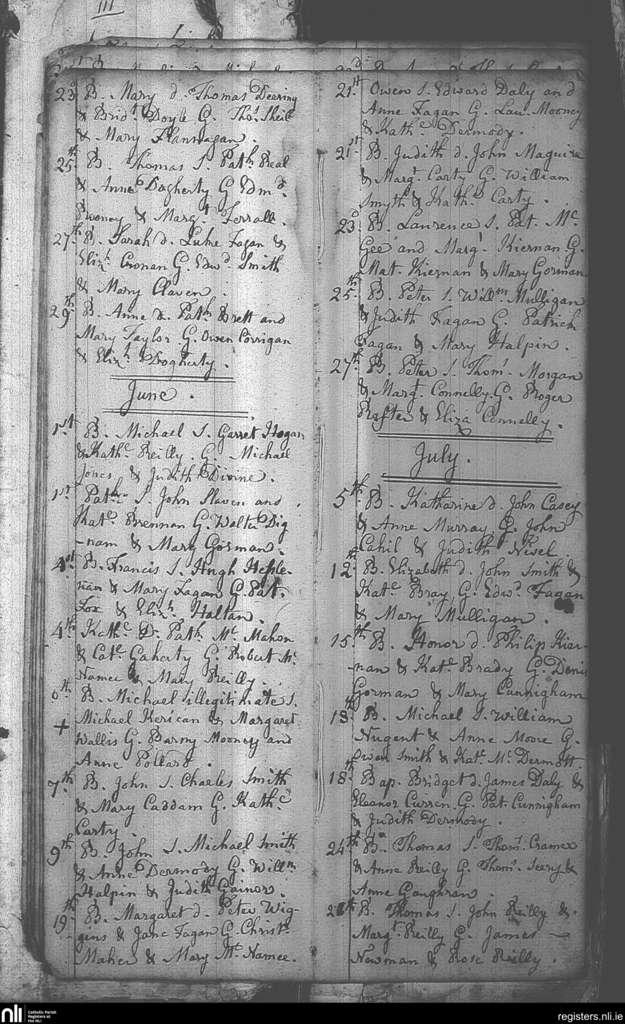 III
23d B. Mary d. Thomas Deering
& Brid. Doyle G. Thos. Sheil
& Mary Flannagan.
25th B. Thomas S. Path. Beal
& Anne Dogherty G. Edmd.
Rooney & Margt. Ferrall.
27th B. Sarah d. Luke Fagan &
Eliz. Cronan G. Edwd. Smith
& Mary Claven
29th B. Anne d. Path. Brett and
Mary Taylor. G. Owen Corrigan
& Eliz. Dogherty.
June.
1st B. Michael S. Garret Hogan
& Kathe. Reilly. G. Michael
Jones & Judith Divine.
1st Path. S. John Slaven and
Kate. Brennan G. Walter Dig
-nam & Mary Gorman.
4st B. Francis S. Hugh
& Mary Fagan G. Pat.
Fox & Eliz. Haltan.
4th Kathe. Dr. Path. Mc. Mahon
& Cate. Gaherty G. Robert Mc.
Namee & Mary Reilly.
6th B. Michael illegitimate S.
+ Michael Kerican & Margaret
Wallis G. Barny Mooney and
Anne Pollard.
7th B. John S. Charles Smith
& Mary Caddam G. Kathe.
Carty.
9th B. John S. Michael Smith
& Anne Dermody G. Willm.
Halpin & Judith Gainor.
19th B. Margaret d. Peter Wig-
gins & Jane Fagan G. Christr.
Maher & Mary Mc. Namee.
21st Owen S. Edward Daly and
Anne Fagan G. Lau. Mooney
& Kathe. Dermody.
21st B. Judith d. John Maguire
& Margt. Carty G. William
Smyth & Kath. Carty.
23d B. Laurence S. Pat. Mc.
Gee and Margt. Kiernan G.
Mat. Kiernan & Mary Gorman
25th B. Peter S. Willm. Mulligan
& Judith Fagan G. Patrick
Fagan & Mary Halpin.
27th B. Peter S. Thom. Morgan
& Margt. Connelly. G. Roger
Rafter & Eliza Connelly.
July.
5th B. Katharine d. John Casey
& Anne Murray G. John
Cahil & Judith
12th B. Elizabeth d. John Smith &
Kate. Bray G. Edwd. Fagan
& Mary Mulligan.
15th B. Honor d. Philip Kier-
nan & Kate. Brady G. Denis
Gorman & Mary Cunnigham
18th B. Michael S. William
Nugent & Anne Moore G.
Owen Smith & Kat. Mc. Dermott.
18th Bap. Bridget d. James Daly &
Eleanor Curren G. Pat. Cunnigham
& Judith Dermody.
24th B. Thomas S. Thos. Cramer
& Anne Reilly G. Thoms. Seery &
Anne Gaughran.
B. Thomas S. John Reilly &
Margt. Reilly G. James
Newman & Rose Reilly.
nli Catholic Parish
Registers at
the NLI
registers.nli.ie